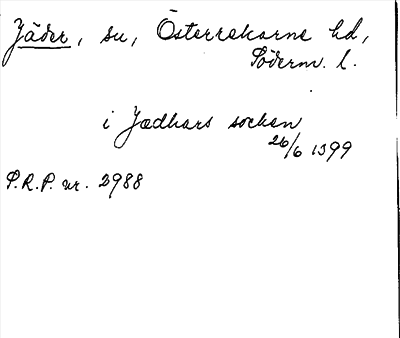 Jäder, sn, Österrekarne hd,
Söderm. l.
i Jædhars soken
26/6 1399
S.R.P. nr. 2988